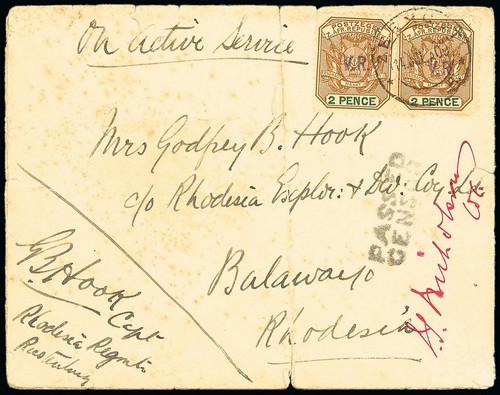 On Active Service
POSTZEGEL
Z. AFR. REPUBLIEK
V.R.
2 PENCE
POSTZEGEL
Z. AFR. REPUBLIEK
V.R.
2 PENCE
Mrs Godfrey B. Hook
c/o Rhodesia Explor: & Dev: Coy: Ld.
PASSED
CENSOR
Bulawayo
Rhodesia
G B Hook Capt
Rhodesia Regmt
Rustenburg
Nicholson
Col.